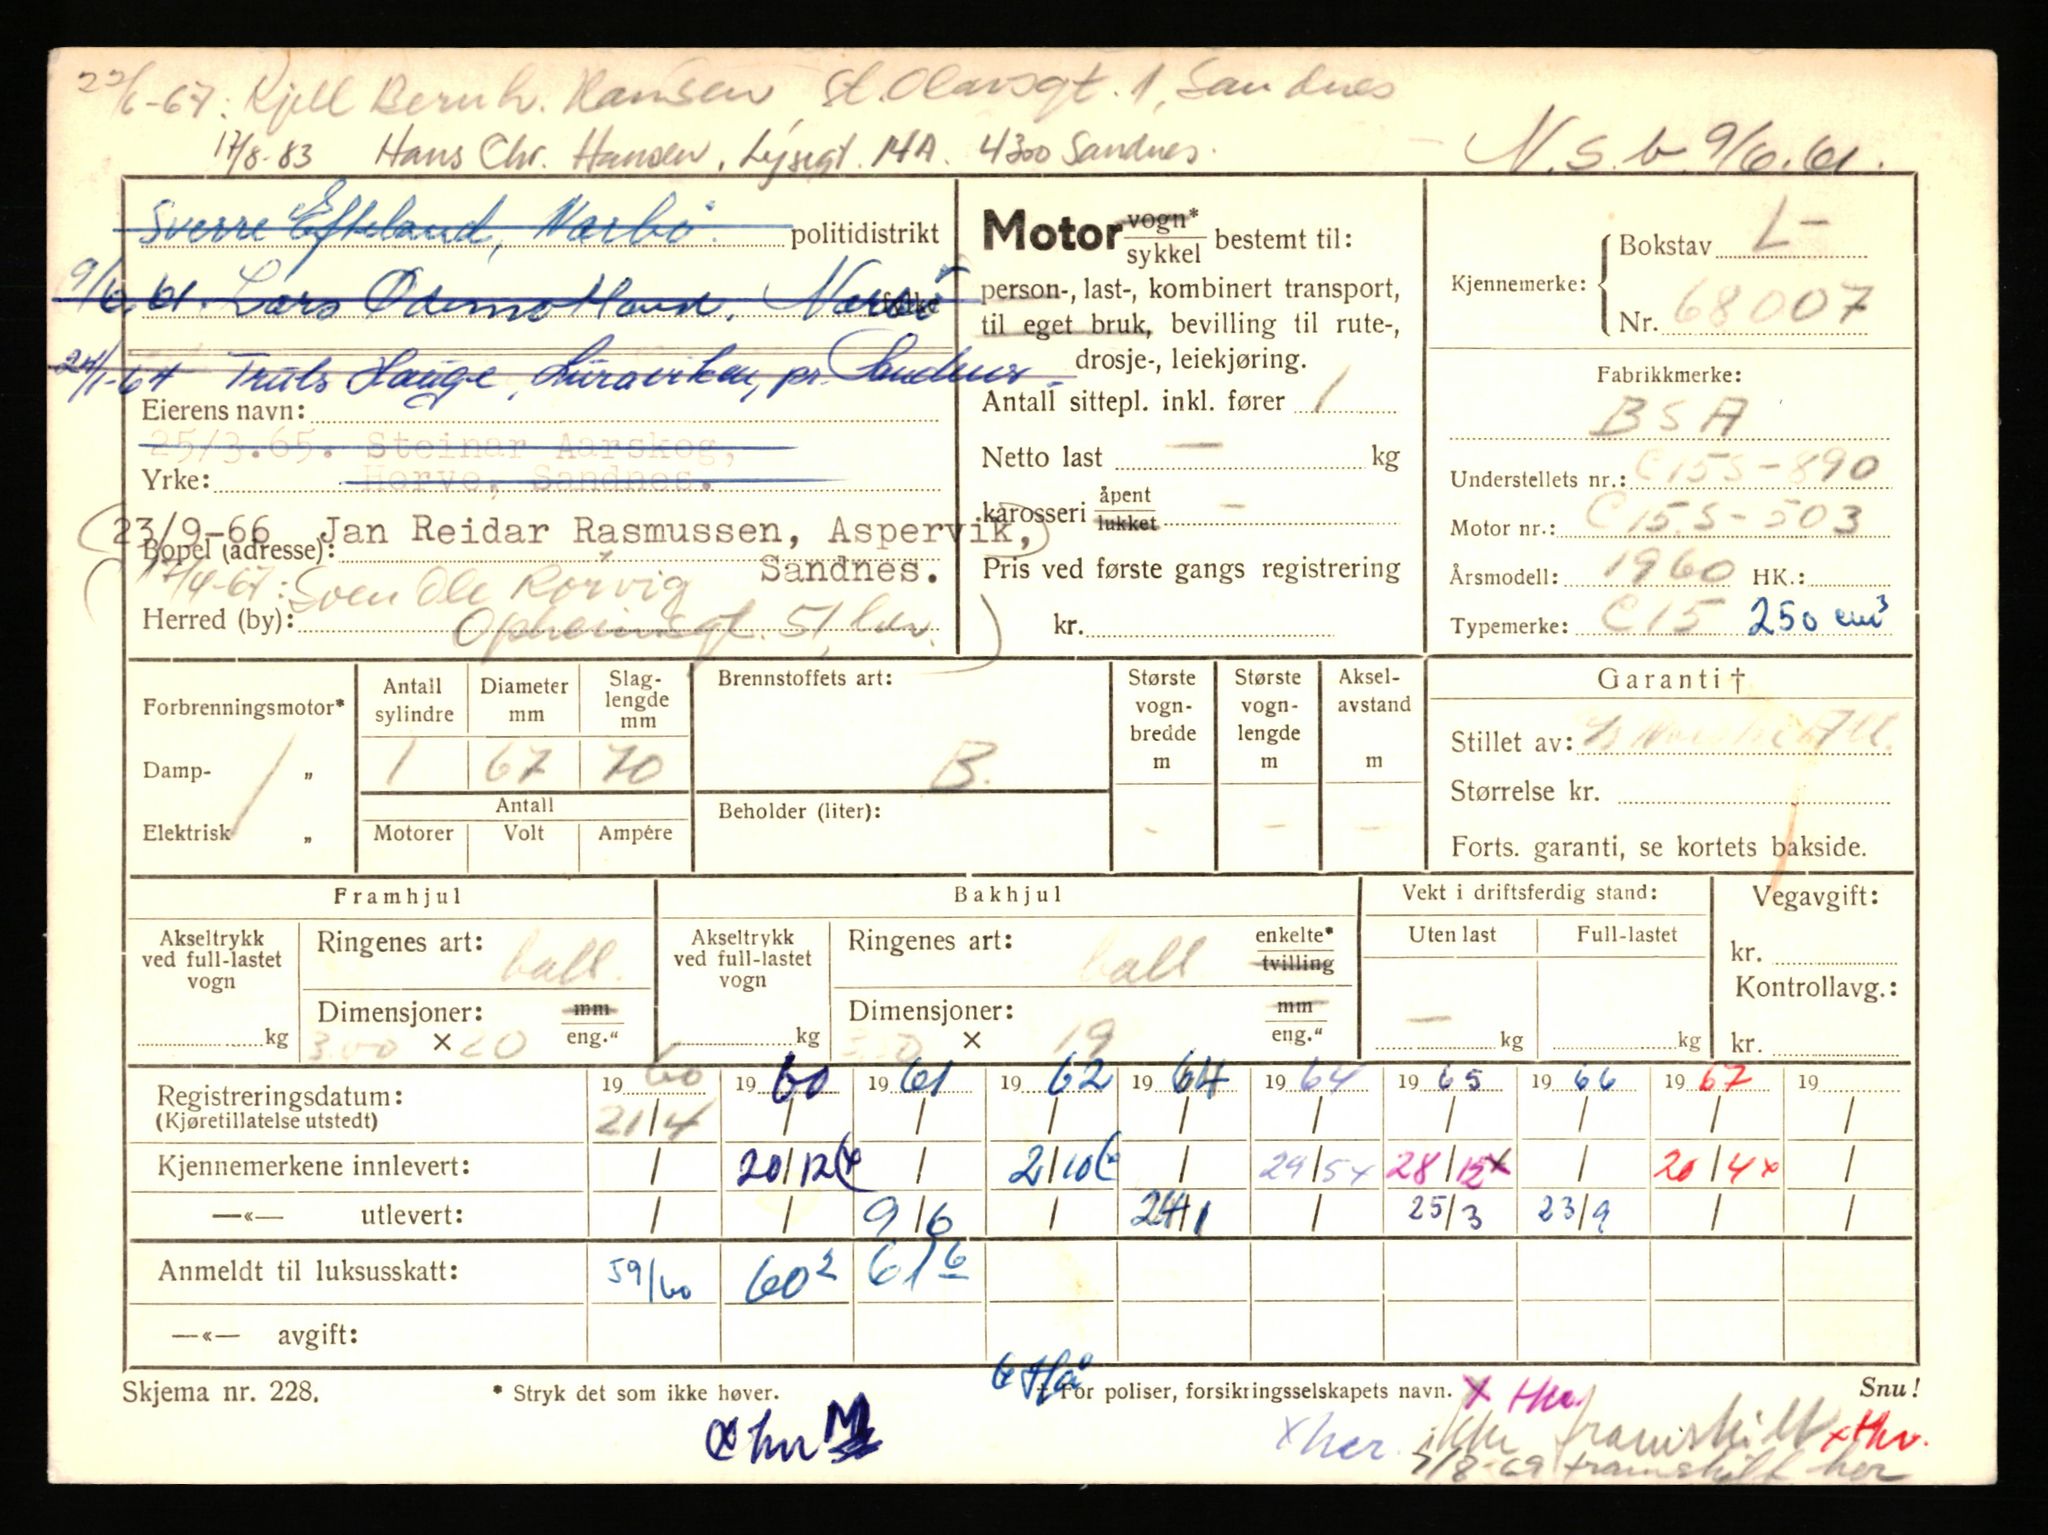 22/6-67: Kjell Bernh. Hansen St. Olavsgt. 1, Sandnes
17/8-83 Hans Chr. Hansen, Lysegt. 14A. 4300 Sandnes.
N.S.b. 9/6.61.
Sverre Efteland, Nærbø. politidistrikt
9/6.61. Lars Ødemotland, Nærbø
24/1-64 Truls Hauge, Luraviken, pr. Sandnes
Eierens navn:
25/3.65. Steinar Aarskog,
Yrke: Hørve, Sandnes.
23/9-66 Jan Reidar Rasmussen, Aspervik,
Bopel (adresse): Sandnes.
17/4-67: Sven Ole Rørvig
Herred (by): Opheimsgt. 51, Lav.
Motor vogn*
sykkel bestemt til:
person-, last-, kombinert transport,
til eget bruk, bevilling til rute-,
drosje-, leiekjøring.
Antall sittepl. inkl. fører 1
Netto last — kg
karosseri åpent
lukket -
Pris ved første gangs registrering
kr.
Kjennemerke: Bokstav L-
Nr. 68007
Fabrikkmerke:
BSA
Understellets nr.: C15S-890
Motor nr.: C15S-503
Årsmodell: 1960 HK.:
Typemerke: C15 250 cm³
Forbrenningsmotor*
Damp- „
Elektrisk „
Antall sylindre Diameter mm Slaglengde mm
1 67 70
Antall
Motorer Volt Ampére
Brennstoffets art:
B.
Beholder (liter):
Største vognbredde m
Største vognlengde m
Akselavstand m
- - -
Garanti †
Stillet av:
Størrelse kr.
Forts. garanti, se kortets bakside.
Framhjul
Akseltrykk ved full-lastet vogn
kg
Ringenes art: ball.
Dimensjoner: mm
3.00 × 20 eng."
Bakhjul
Akseltrykk ved full-lastet vogn
kg
Ringenes art: ball enkelte*
tvilling
Dimensjoner: mm
3.50 × 19 eng."
Vekt i driftsferdig stand:
Uten last Full-lastet
— kg kg
Vegavgift:
kr.
Kontrollavg.:
kr.
1960 1960 1961 1962 1964 1964 1965 1966 1967 19
Registreringsdatum: 21/4 / / / / / / / / /
(Kjøretillatelse utstedt)
Kjennemerkene innlevert: / 20/12 / 2/10 / 29/5x 28/12x / 20/4x /
—«— utlevert: / / 9/6 / 24/1 / 25/3 23/9 / /
Anmeldt til luksusskatt: 59/60 60² 61 6
—«— avgift:
Skjema nr. 228. * Stryk det som ikke høver. Hå † For poliser, forsikringsselskapets navn. x Her. Snu!
her x her. ikke framskilt x Her.
5/8-69 framskilt her